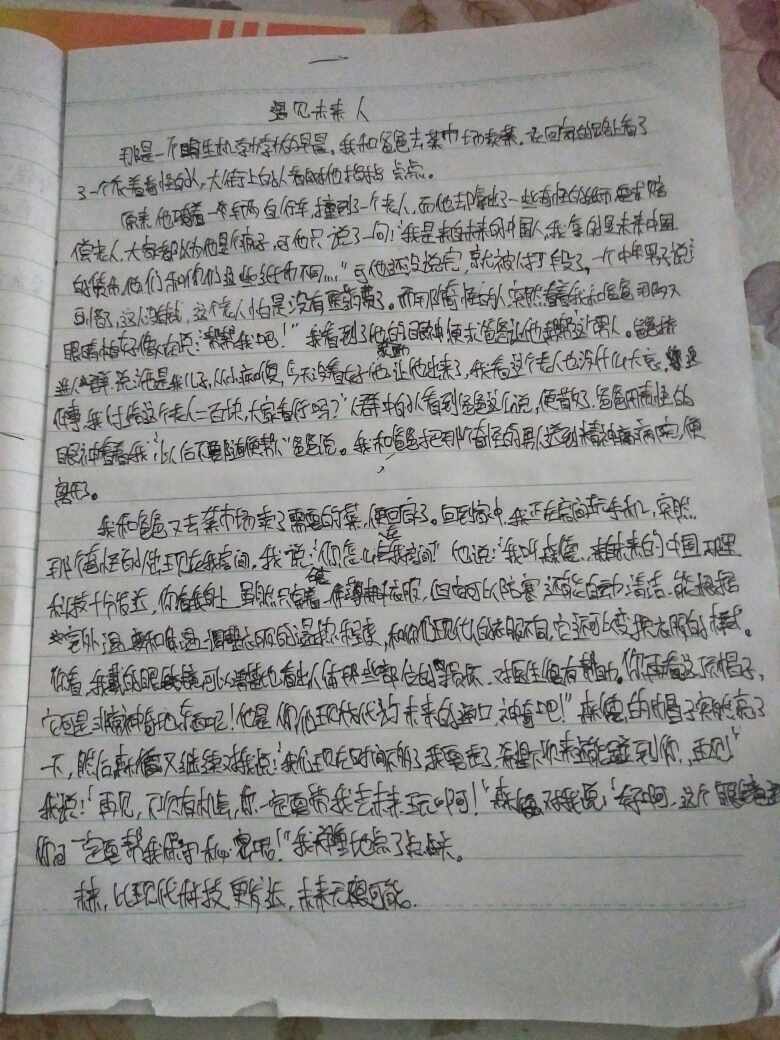 一
遇见未来人
那是一个生机勃勃的早晨,我和爸爸去菜市场卖菜,在回家的路上看了
了一个长着奇怪的人,大街上的人看着他指指点点。
原来他骑着一车两自行车,撞到了一个老人,而他却拿出了一些奇怪的纸币要求赔
偿老人,大家都以为他是个疯子,可他只说了一句:"我是来自未来的中国人,我拿的是未来中国
的货币,他们和你们这些纸币不同……"可他还没说完,就被人打段了,一个中年男子说:
这个老人怕是没有医药费了。而那个奇怪的人突然看着我和爸爸用两只
眼睛好像在说:"帮帮我吧!"我看到了他的眼神便求爸爸让他帮帮这个男人。爸爸挤
进人群说:他是我儿子,从小,今天没看好他,让他出来了,我看这个老人也没什么大忌,
我付给这个老人二百块,大家看行吗?"人群中的人看到爸爸这么说,便散好.爸爸用奇怪的
眼神看着我,"以后不要随便帮人"爸爸说。我和爸爸把那个奇怪的男人送到精神病病院,便
离开了。
我和爸爸又去菜市场卖了需要的菜,便回家了。回到家中,我正在房间玩手机,突然
那个奇怪的人出现在我房间,我说:"你怎么在我房间?"他说:"我叫森德,来未来的中国.那里
科技十分发达,你看我身上虽然只有着一件薄薄衣服,但它可以防寒还能自动清洁,能根据
室外温度和室温调整衣服的温热程度,和你们现代的衣服不同,它还可以变换衣服的样式。
你看,我戴的眼镜可以清楚地看出人体那些部位的损坏,对医生很有帮助。你再看这顶帽子,
它可是非常神奇地东西呢!他是你们现代到未来的通口,神奇吧!"森德的帽子突然亮了
一下,然后森德又继续对我说:"我们现在时间不够了我要走了,希望下次来还能碰到你,再见"
我说:"再见,下次有机会,你一定要带我去未来玩啊!"森德对我说:"好啊,这个
你可一定要帮我保守秘密吧!"我地点了点头。
未来,比现代科技更发达,未来无限可能。